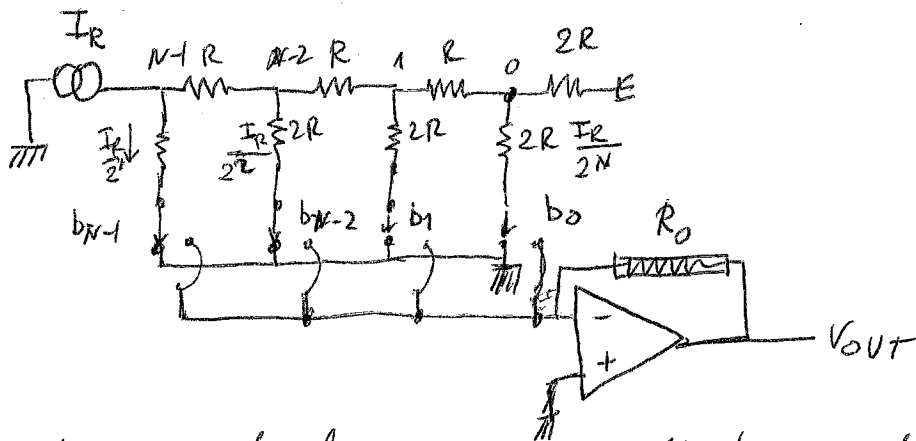 I_R
N-1 R N-2 R 1 R 0 2R
I_R/2^1 I_R/2^2 2R 2R 2R I_R/2^N
b_N-1 b_N-2 b_1 b_0 R_0
-
+
V_OUT